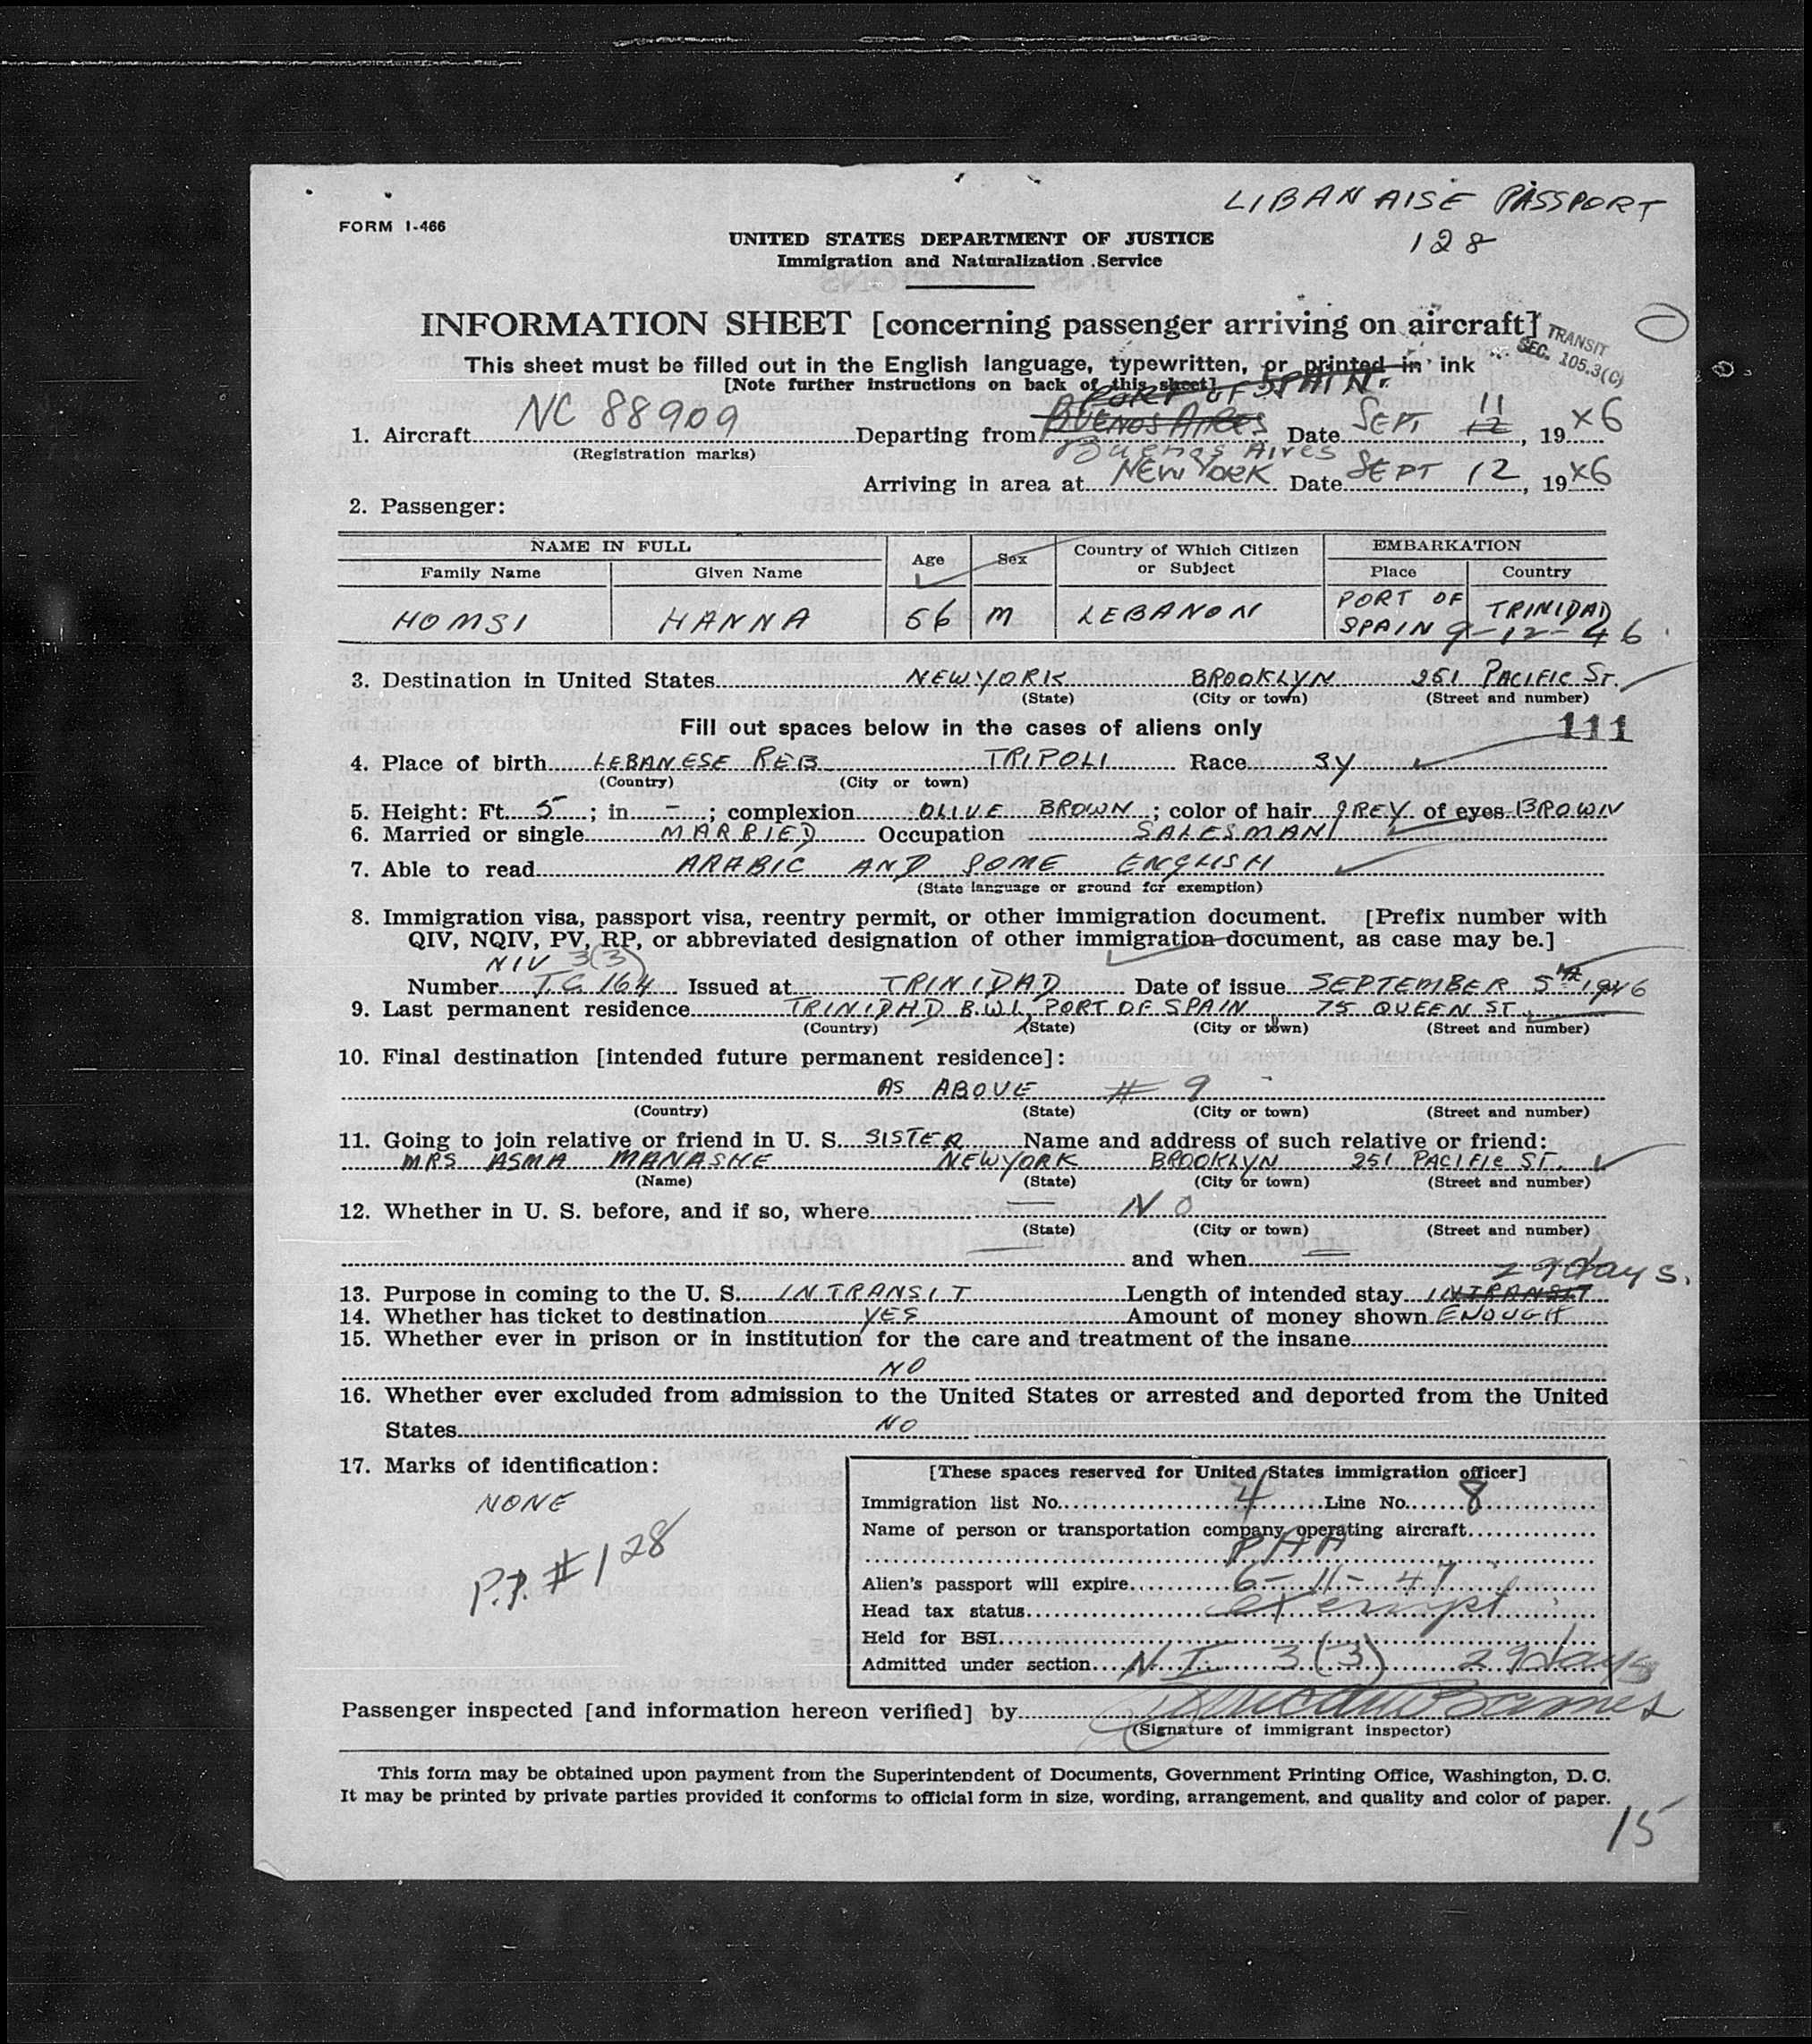 LIBANAISE PASSPORT
128
FORM I-466
UNITED STATES DEPARTMENT OF JUSTICE
Immigration and Naturalization Service
INFORMATION SHEET [concerning passenger arriving on aircraft]
TRANSIT
SEC. 105.3(C)
This sheet must be filled out in the English language, typewritten, or printed in ink
[Note further instructions on back of this sheet]
PORT OF SPAIN
1. Aircraft NC 88909 Departing from BUENOS AIRES Date SEPT 11 12, 19 46
(Registration marks) Buenos Aires
Arriving in area at NEW YORK Date SEPT 12, 19 46
2. Passenger:
NAME IN FULL Age Sex Country of Which Citizen or Subject EMBARKATION
Family Name Given Name Place Country
HOMSI HANNA 56 M LEBANON PORT OF SPAIN TRINIDAD
9-12-46
3. Destination in United States NEW YORK BROOKLYN 251 PACIFIC ST.
(State) (City or town) (Street and number)
Fill out spaces below in the cases of aliens only 111
4. Place of birth LEBANESE REB TRIPOLI Race SY
(Country) (City or town)
5. Height: Ft. 5 ; in - ; complexion OLIVE BROWN ; color of hair GREY of eyes BROWN
6. Married or single MARRIED Occupation SALESMAN
7. Able to read ARABIC AND SOME ENGLISH
(State language or ground for exemption)
8. Immigration visa, passport visa, reentry permit, or other immigration document. [Prefix number with
QIV, NQIV, PV, RP, or abbreviated designation of other immigration document, as case may be.]
NIV 3(3)
Number T.C 164 Issued at TRINIDAD Date of issue SEPTEMBER 5TH 1946
9. Last permanent residence TRINIDAD B.W.I. PORT OF SPAIN 75 QUEEN ST.
(Country) (State) (City or town) (Street and number)
10. Final destination [intended future permanent residence]:
AS ABOVE # 9
(Country) (State) (City or town) (Street and number)
11. Going to join relative or friend in U. S. SISTER Name and address of such relative or friend:
MRS ASMA MANASHE NEW YORK BROOKLYN 251 PACIFIC ST.
(Name) (State) (City or town) (Street and number)
12. Whether in U. S. before, and if so, where NO
(State) (City or town) (Street and number)
and when
29 days.
13. Purpose in coming to the U. S. INTRANSIT Length of intended stay INTRANSIT
14. Whether has ticket to destination YES Amount of money shown ENOUGH
15. Whether ever in prison or in institution for the care and treatment of the insane
NO
16. Whether ever excluded from admission to the United States or arrested and deported from the United
States NO
17. Marks of identification:
NONE
P.P. #128
[These spaces reserved for United States immigration officer]
Immigration list No. 4 Line No. 8
Name of person or transportation company operating aircraft
PAA
Alien's passport will expire 6-11-47
Head tax status exempt
Held for BSI
Admitted under section N.I. 3(3) 29 days
Passenger inspected [and information hereon verified] by
(Signature of immigrant inspector)
This form may be obtained upon payment from the Superintendent of Documents, Government Printing Office, Washington, D. C.
It may be printed by private parties provided it conforms to official form in size, wording, arrangement, and quality and color of paper.
15